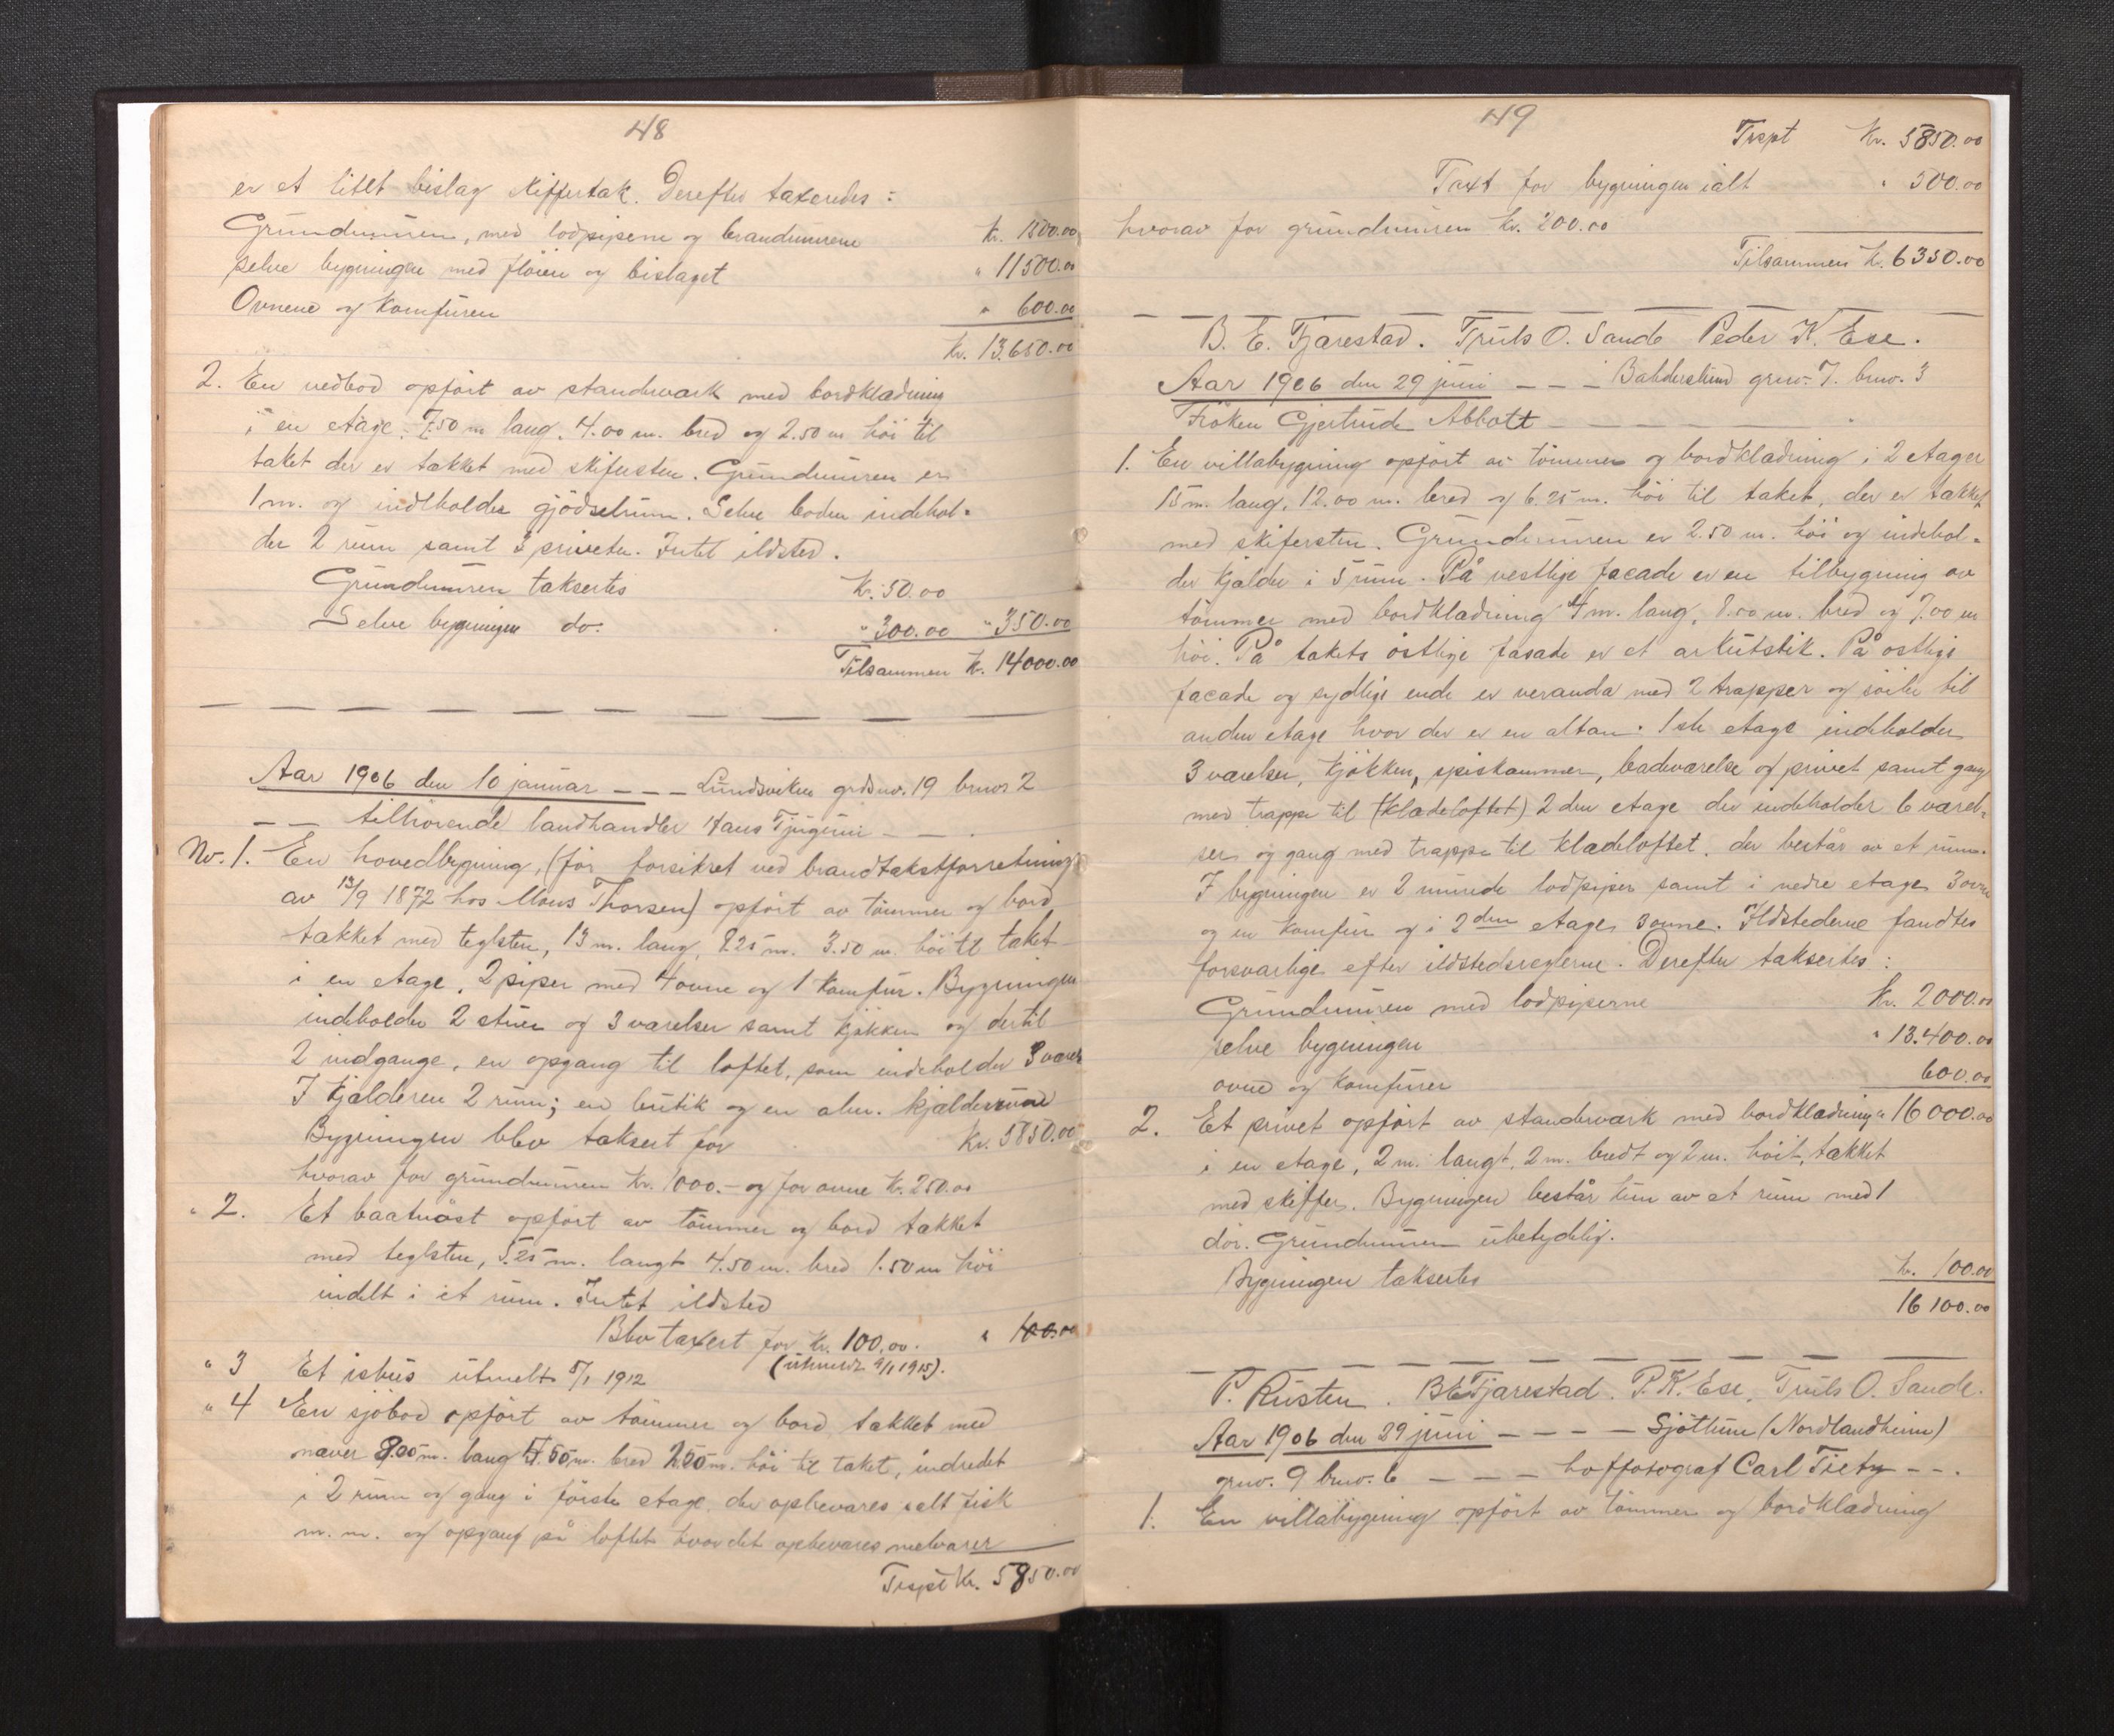 48
er et litet bislag skiffertak. Derefter taxeredes:
Grundmuren, med lodpipene og brandmurene Kr. 1500.00
selve bygningen med fløien og bislaget " 11500.00
Ovnene og komfuren " 600.00
Kr. 13.650.00
2. En vedbod opført av standerværk med bordklædning
i en etage. 7.50 m lang. 4.00 m. bred og 2.50 m høi til
taket der er tækket med skifersten. Grundmuren er
1 m. og indholder gjødselrum. Selve boden indehol-
der 2 rum samt 3 priveter. Intet ildsted.
Grundmuren taksertes Kr. 50.00
Selve bygningen do. " 300.00 " 350.00
Tilsammen Kr. 14000.00
Aar 1906 den 10 januar - - - Lundsviken grdsnr. 19 brnr 2
- - tilhørende landhandler Hans Tjugum - - .
Nr. 1. En hovedbygning, (før forsikret ved brandtakstforretning
av 13/9 1872 hos Mons Thorsen) opført av tømmer og bord
tækket med teglsten, 13 m. lang, 8.25 m. 3.50 m. høi til taket
i en etage, 2 piper med 4 ovne og 1 komfur. Bygningen
indeholder 2 stuer og 3 værelser samt kjøkken og dertil
2 indgange, en opgang til loftet, som indeholder 3 værel
I kjælderen 2 rum; en butik og en alm. kjælderrum
Bygningen blev taksert for Kr. 5850.00
hvorav for grundmuren Kr. 1000.- og for ovne Kr. 250.00
" 2. Et baatnøst opført av tømmer og bord tækket
med teglsten, 5.25 m. langt 4.50 m. bred 1.50 m høi
indelt i et rum. Intet ildsted
Blev taxert for Kr. 100.00. " 100.00
(utmeldt 9/1 1915).
" 3 Et ishus utmelt 5/1 1912
" 4 En sjøbod opført av tømmer og bord, tækket med
næver 8.00 m. lang 5.50 m. bred 2.50 m. høi til taket, indredet
i 2 rum og gang i første etage der opbevares salt fisk
m. m. og opgang på loftet hvor det opbevares melvarer
Trspt Kr. 5850.00
49
Trspt Kr. 5850.00
Taxt for bygningen ialt " 500.00
hvorav for grundmuren Kr. 200.00
Tilsammen Kr. 6350.00
B. E. Tjærestad. Truls O. Sande Peder K. Ese.
Aar 1906 den 29 juni - - - Balderslund grnr. 7. brnr. 3
Frøken Gjertrude Abbott - - - - -
1. En villabygning opført av tømmer og bordklædning i 2 etager
15 m. lang, 12.00 m. bred og 6.25 m. høi til taket, der er tækket
med skifersten. Grundmuren er 2.50 m. høi og indehol-
der kjælder i 5 rum. På vestlige facade er en tilbygning av
tømmer med bordklædning 4 m. lang, 8.00 m. bred og 7.00 m
høi. På takets østlige fasade er et arkutstik. På østlige
facade og sydlige ende er veranda med 2 trapper og søiler til
anden etage hvor der er en altan. 1ste etage indeholder
3 værelser, kjøkken, spiskammer, badeværelse og privet samt gang
med trappe til (klædeloftet) 2den etage der indeholder 6 værel-
ser og gang med trappe til klædeloftet, der består av et rum.
I bygningen er 2 murede lodpiper samt i nedre etage 3 ovne
og en komfur og i 2den etage 3 ovne. Ildstederne fandtes
forsvarlige efter ildstedsreglerne. Derefter taksertes:
Grundmuren med lodpiperne Kr. 2000.00
selve bygningen " 13.400.00
ovne og komfurer 600.00
2. Et privet opført av standerværk med bordklædning " 16000.00
i en etage, 2 m. langt, 2 m. bredt og 2 m. høit, tækket
med skiffer. Bygningen består kun av et rum med 1
dør. Grundmuren ubetydelig.
Bygningen taksertes Kr. 100.00
16 100.00
P. Rusten. B E Tjærestad. P. K. Ese. Truls O. Sande.
Aar 1906 den 29 juni - - - - Sjøtun (Nordlandheim)
grnr. 9 brnr. 6 - - - hoffotograf Carl Tietz - - .
1. En villabygning opført av tømmer og bordklædning